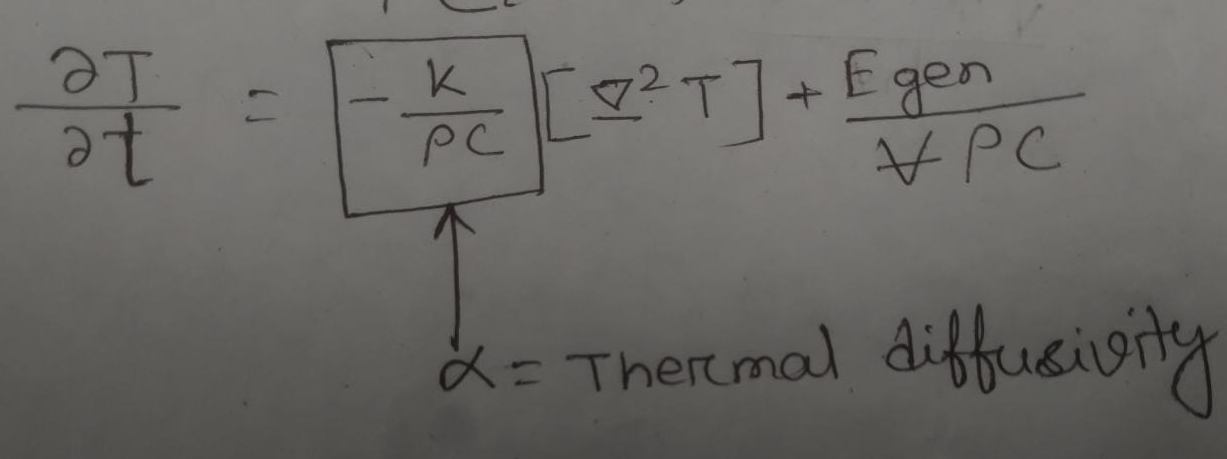 ∂T/∂t = - K/ρC [∇² T] + E gen/V ρC
α = Thermal diffusivity